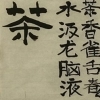 茶香雀舌
水汲龙脑液
茶